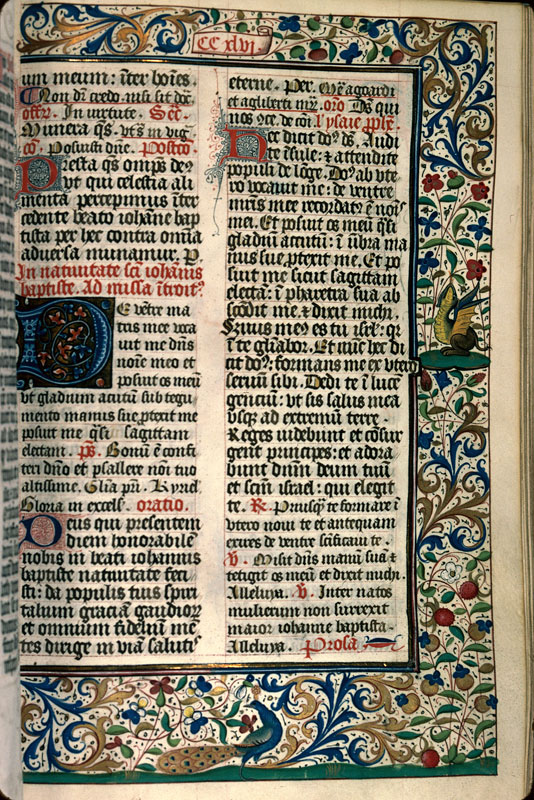 CC xlvi
um meum: īter hoīes.
Non dn̄ credo. nisi sit dōc̄
offer̄. In virtute. Secr̄.
Munera qs. vt s̄ in viḡ.
cō. Posuisti dn̄e. Postcō
Presta qs om̄ps de9
vt qui celestia ali
menta percepimus īter
cedente beato iohāne bap
tista per hec contra om̄ia
aduersa muniamur. P.
In natiuitate sc̄i iohānis
baptiste. Ad missā ītroit9.
De vētre ma
tris mee voca
uit me dn̄s
noīe meo et
posuit os meū
vt gladium acutū sub tegu
mento manus sue ꝓtexit me
posuit me q̄si sagittam
electam. ps̄. Bonū ē confi
teri dn̄o et psallere noī tuo
altissime. Glīa pr̄i. Kyriel̄
Gloria in excels̄. oratio.
Deus qui presentem
diem honorabilē
nobis in beati iohannis
baptiste natiuitate feci
sti: da populis tuis spiri
talium graciā gaudioꝝ
et omnium fidelium mē
tes dirige in viā saluti9
eterne. Per. Mr̄e agoardi
et agliberti mr̄. orō Ds̄ qui
nos. 9ce. de cōi l ysaie ꝓph̄e.
Hec dicit do9 ds̄. Audi
te īsule: ⁊ attendite
populi de lōge. Do9 ab vte
ro vocauit me: de ventre
mr̄is mee recordat9 ē noīs
mei. Et posuit os meū q̄si
gladiū acutū: ī v̄bra ma
nus sue ꝓtexit me. Et po
suit me sicut sagittam
electā: ī pharetra sua ab
scōdit me. ⁊ dixit michi.
Seruus me9 es tu isrl̄: qr̄
ī te gl̄iabor. Et nūc hec di
cit do9: formans me ex vtero
seruū sibi. Dedi te ī lucē
genciū: vt sis salus mea
vsqꝫ ad extremū terre.
Reges videbunt et cōsur
gent principes: et adora
bunt dnm̄ deum tuū
et sc̄m israel: qui elegit
te. R̄. Priusqꝫ te formarē ī
vtero noui te et antequam
exires de ventre sc̄ificaui te.
v̄. Misit dn̄s manū suā ⁊
tetigit os meū et dixit michi.
Alleluya. v̄. Inter natos
mulierum non surrexit
maior iohanne baptista.
Alleluya. Prosa